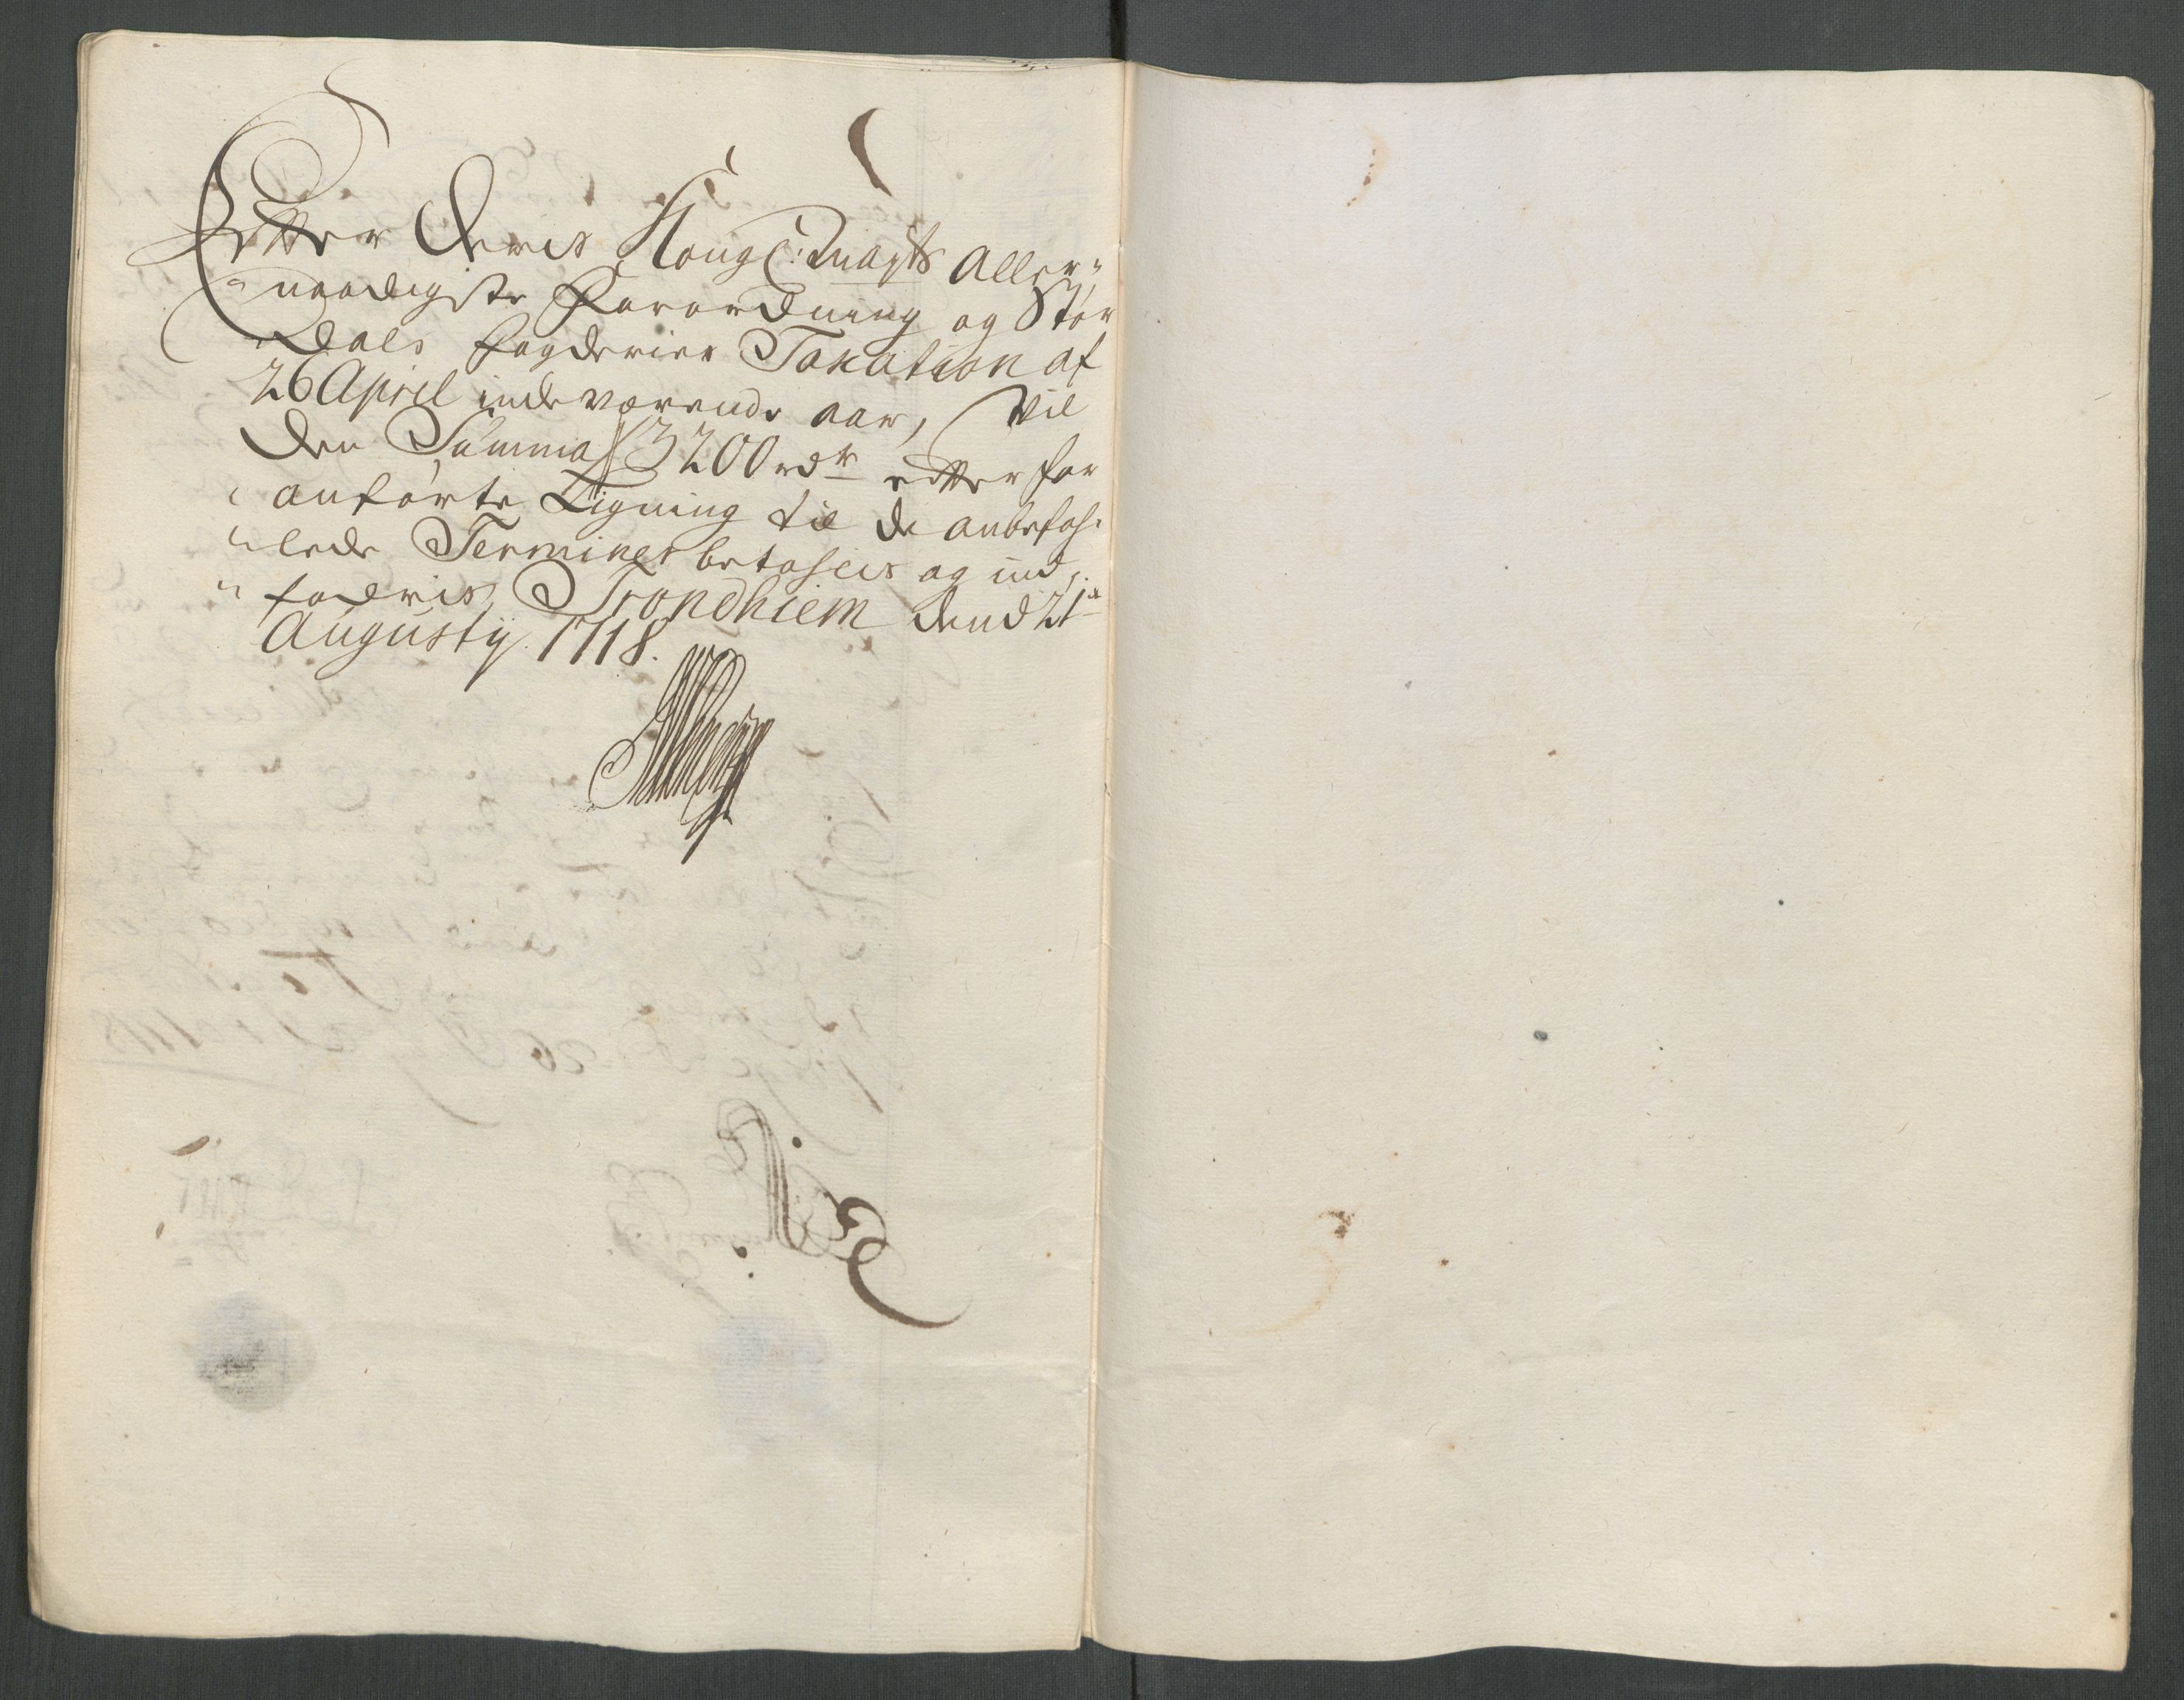 Efter Deris Kongl: Mayts Aller„
„naadigste Forordning og Stør
„dals fogderies Taxation af
26 April indeværende aar, vil
den Summa 3200 rdr efter for
„anførte Ligning til de anbefah„
„lede Terminer betahles og ind„
„fodris, Trondhiem dend 21de
Augusty 1718.